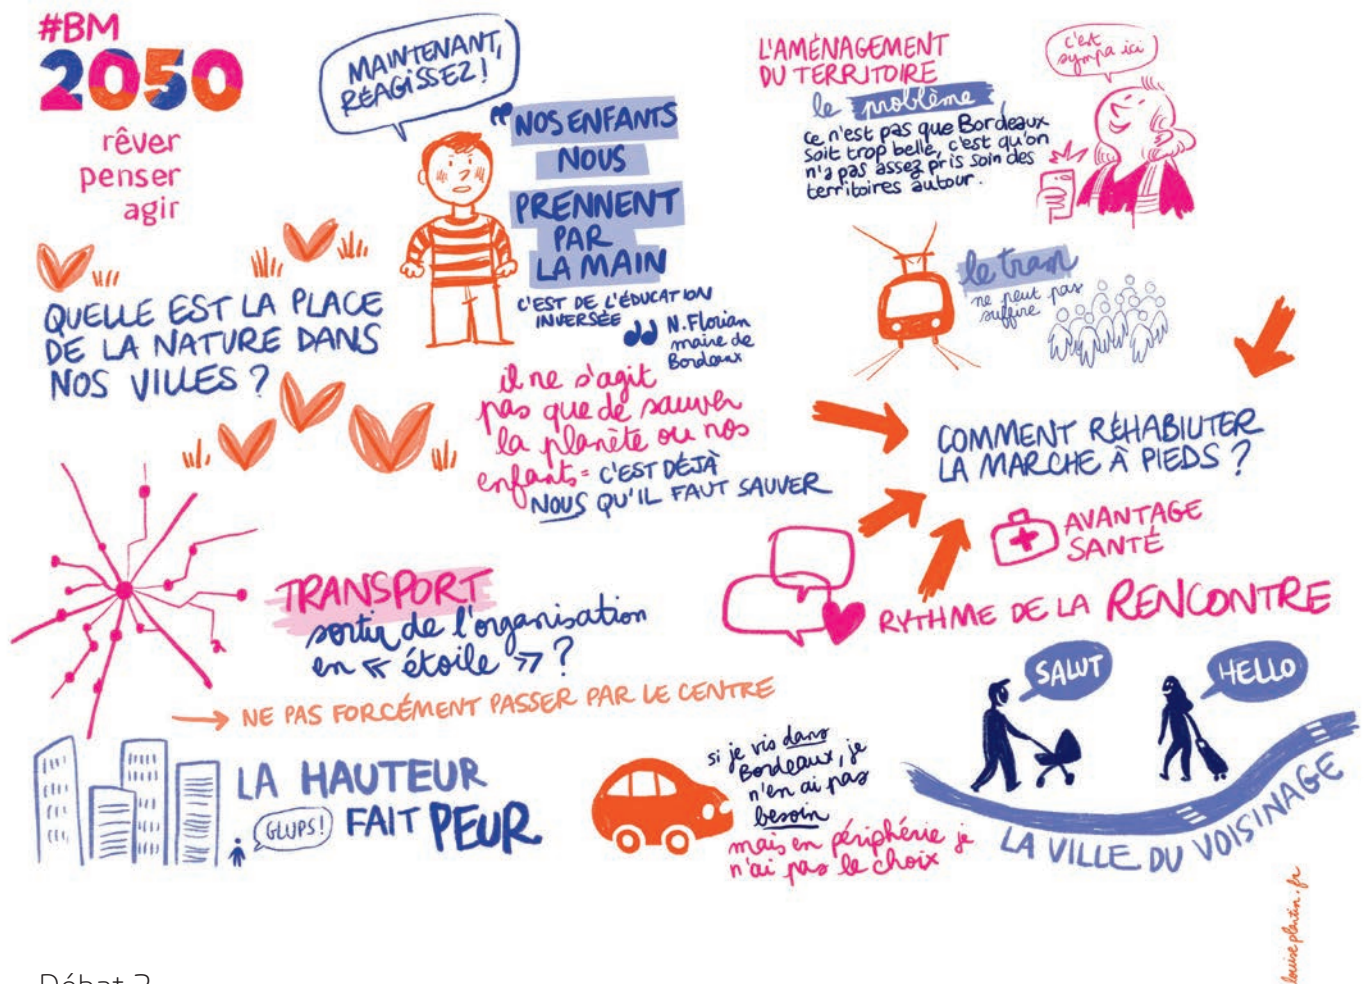 #BM
2050
rêver
penser
agir
MAINTENANT,
RÉAGISSEZ !
"NOS ENFANTS
NOUS
PRENNENT
PAR
LA MAIN
C'EST DE L'ÉDUCATION
INVERSÉE "
N. Florian
maire de
Bordeaux
L'AMÉNAGEMENT
DU TERRITOIRE
le problème
ce n'est pas que Bordeaux
soit trop belle, c'est qu'on
n'a pas assez pris soin des
territoires autour.
c'est
sympa ici
le tram
ne peut pas
suffire
QUELLE EST LA PLACE
DE LA NATURE DANS
NOS VILLES ?
il ne s'agit
pas que de sauver
la planète ou nos
enfants = C'EST DÉJÀ
NOUS QU'IL FAUT SAUVER
COMMENT RÉHABILITER
LA MARCHE À PIEDS ?
AVANTAGE
SANTÉ
RYTHME DE LA RENCONTRE
TRANSPORT
sortir de l'organisation
en « étoile » ?
→ NE PAS FORCÉMENT PASSER PAR LE CENTRE
LA HAUTEUR
FAIT PEUR
GLUPS !
si je vis dans
Bordeaux, je
n'en ai pas
besoin
mais en périphérie je
n'ai pas le choix
SALUT
HELLO
LA VILLE DU VOISINAGE
louiseplantin.fr